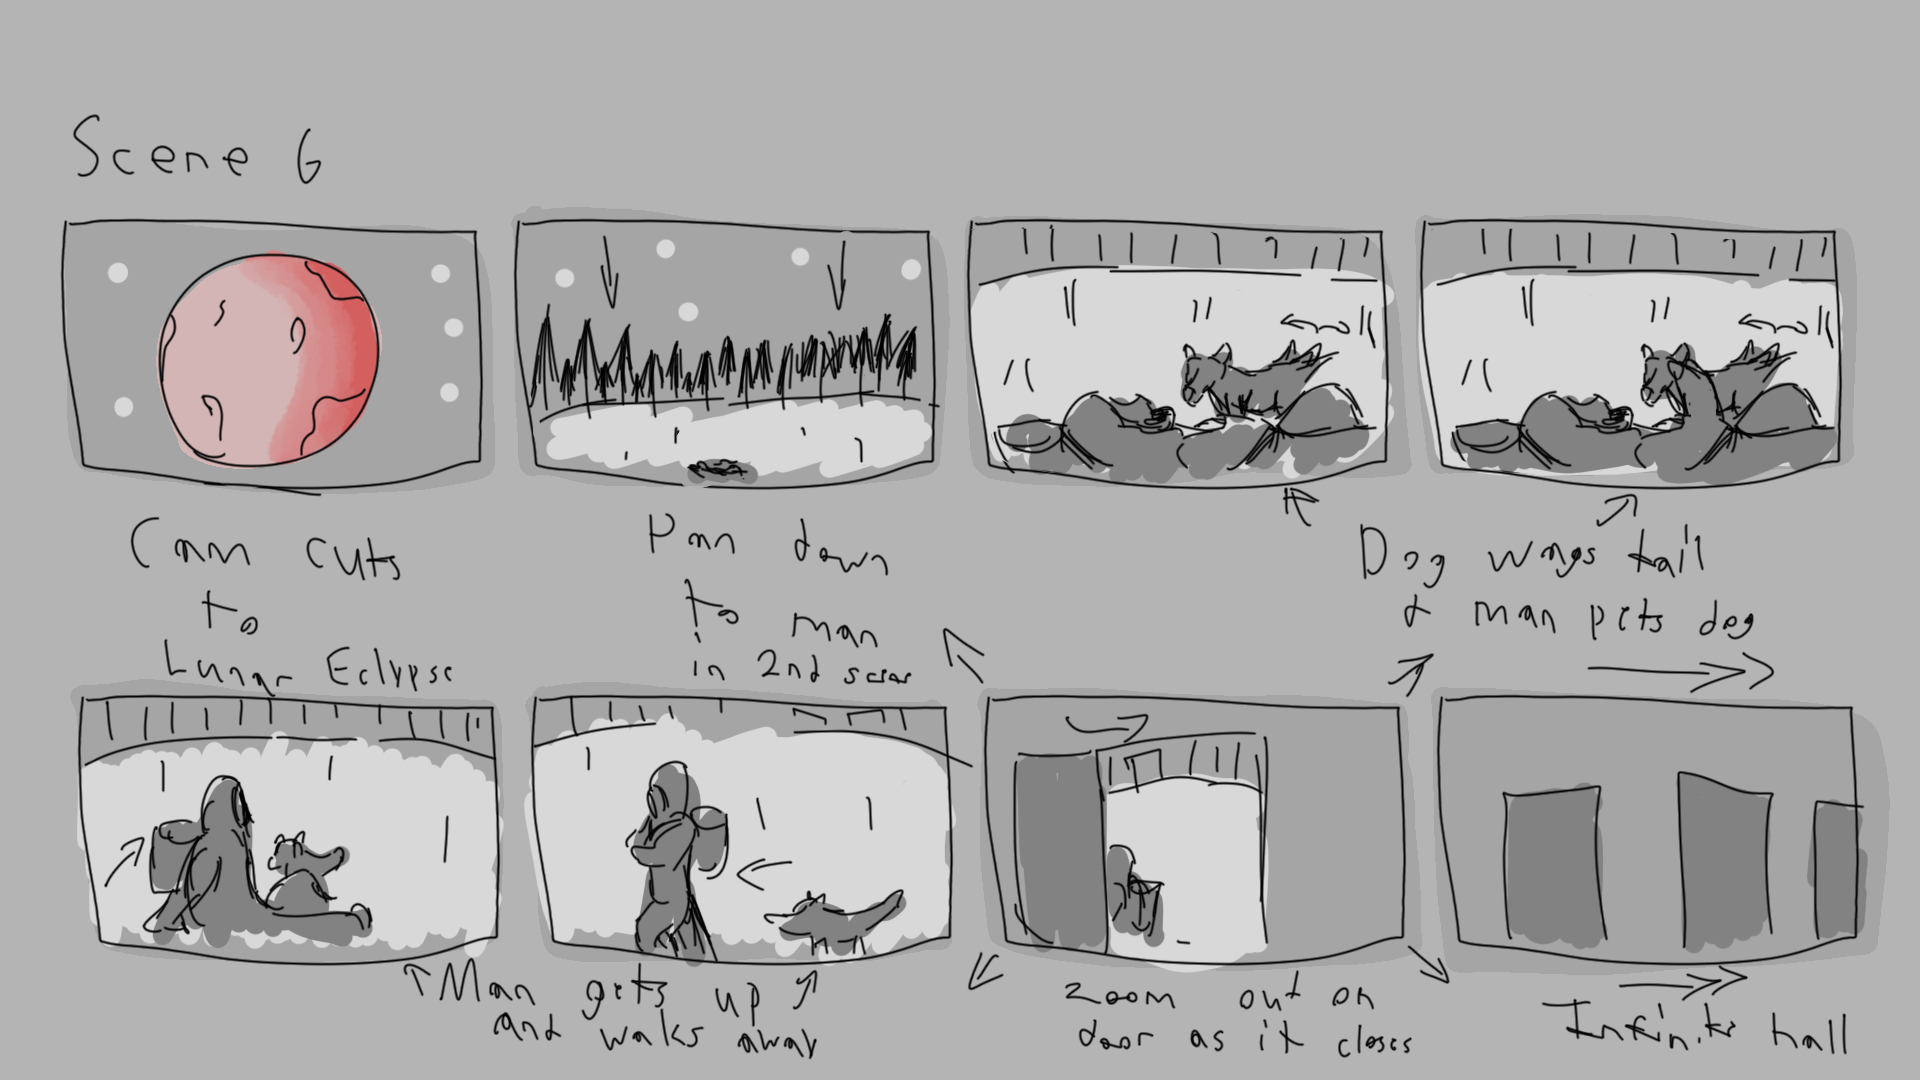 Scene 6
Cam cuts
to
Lunar Eclypse
Pan down
to man
in 2nd scene
Dog wags tail
& man pets dog
Man gets up
and walks away
Zoom out on
door as it closes
Infinite hall